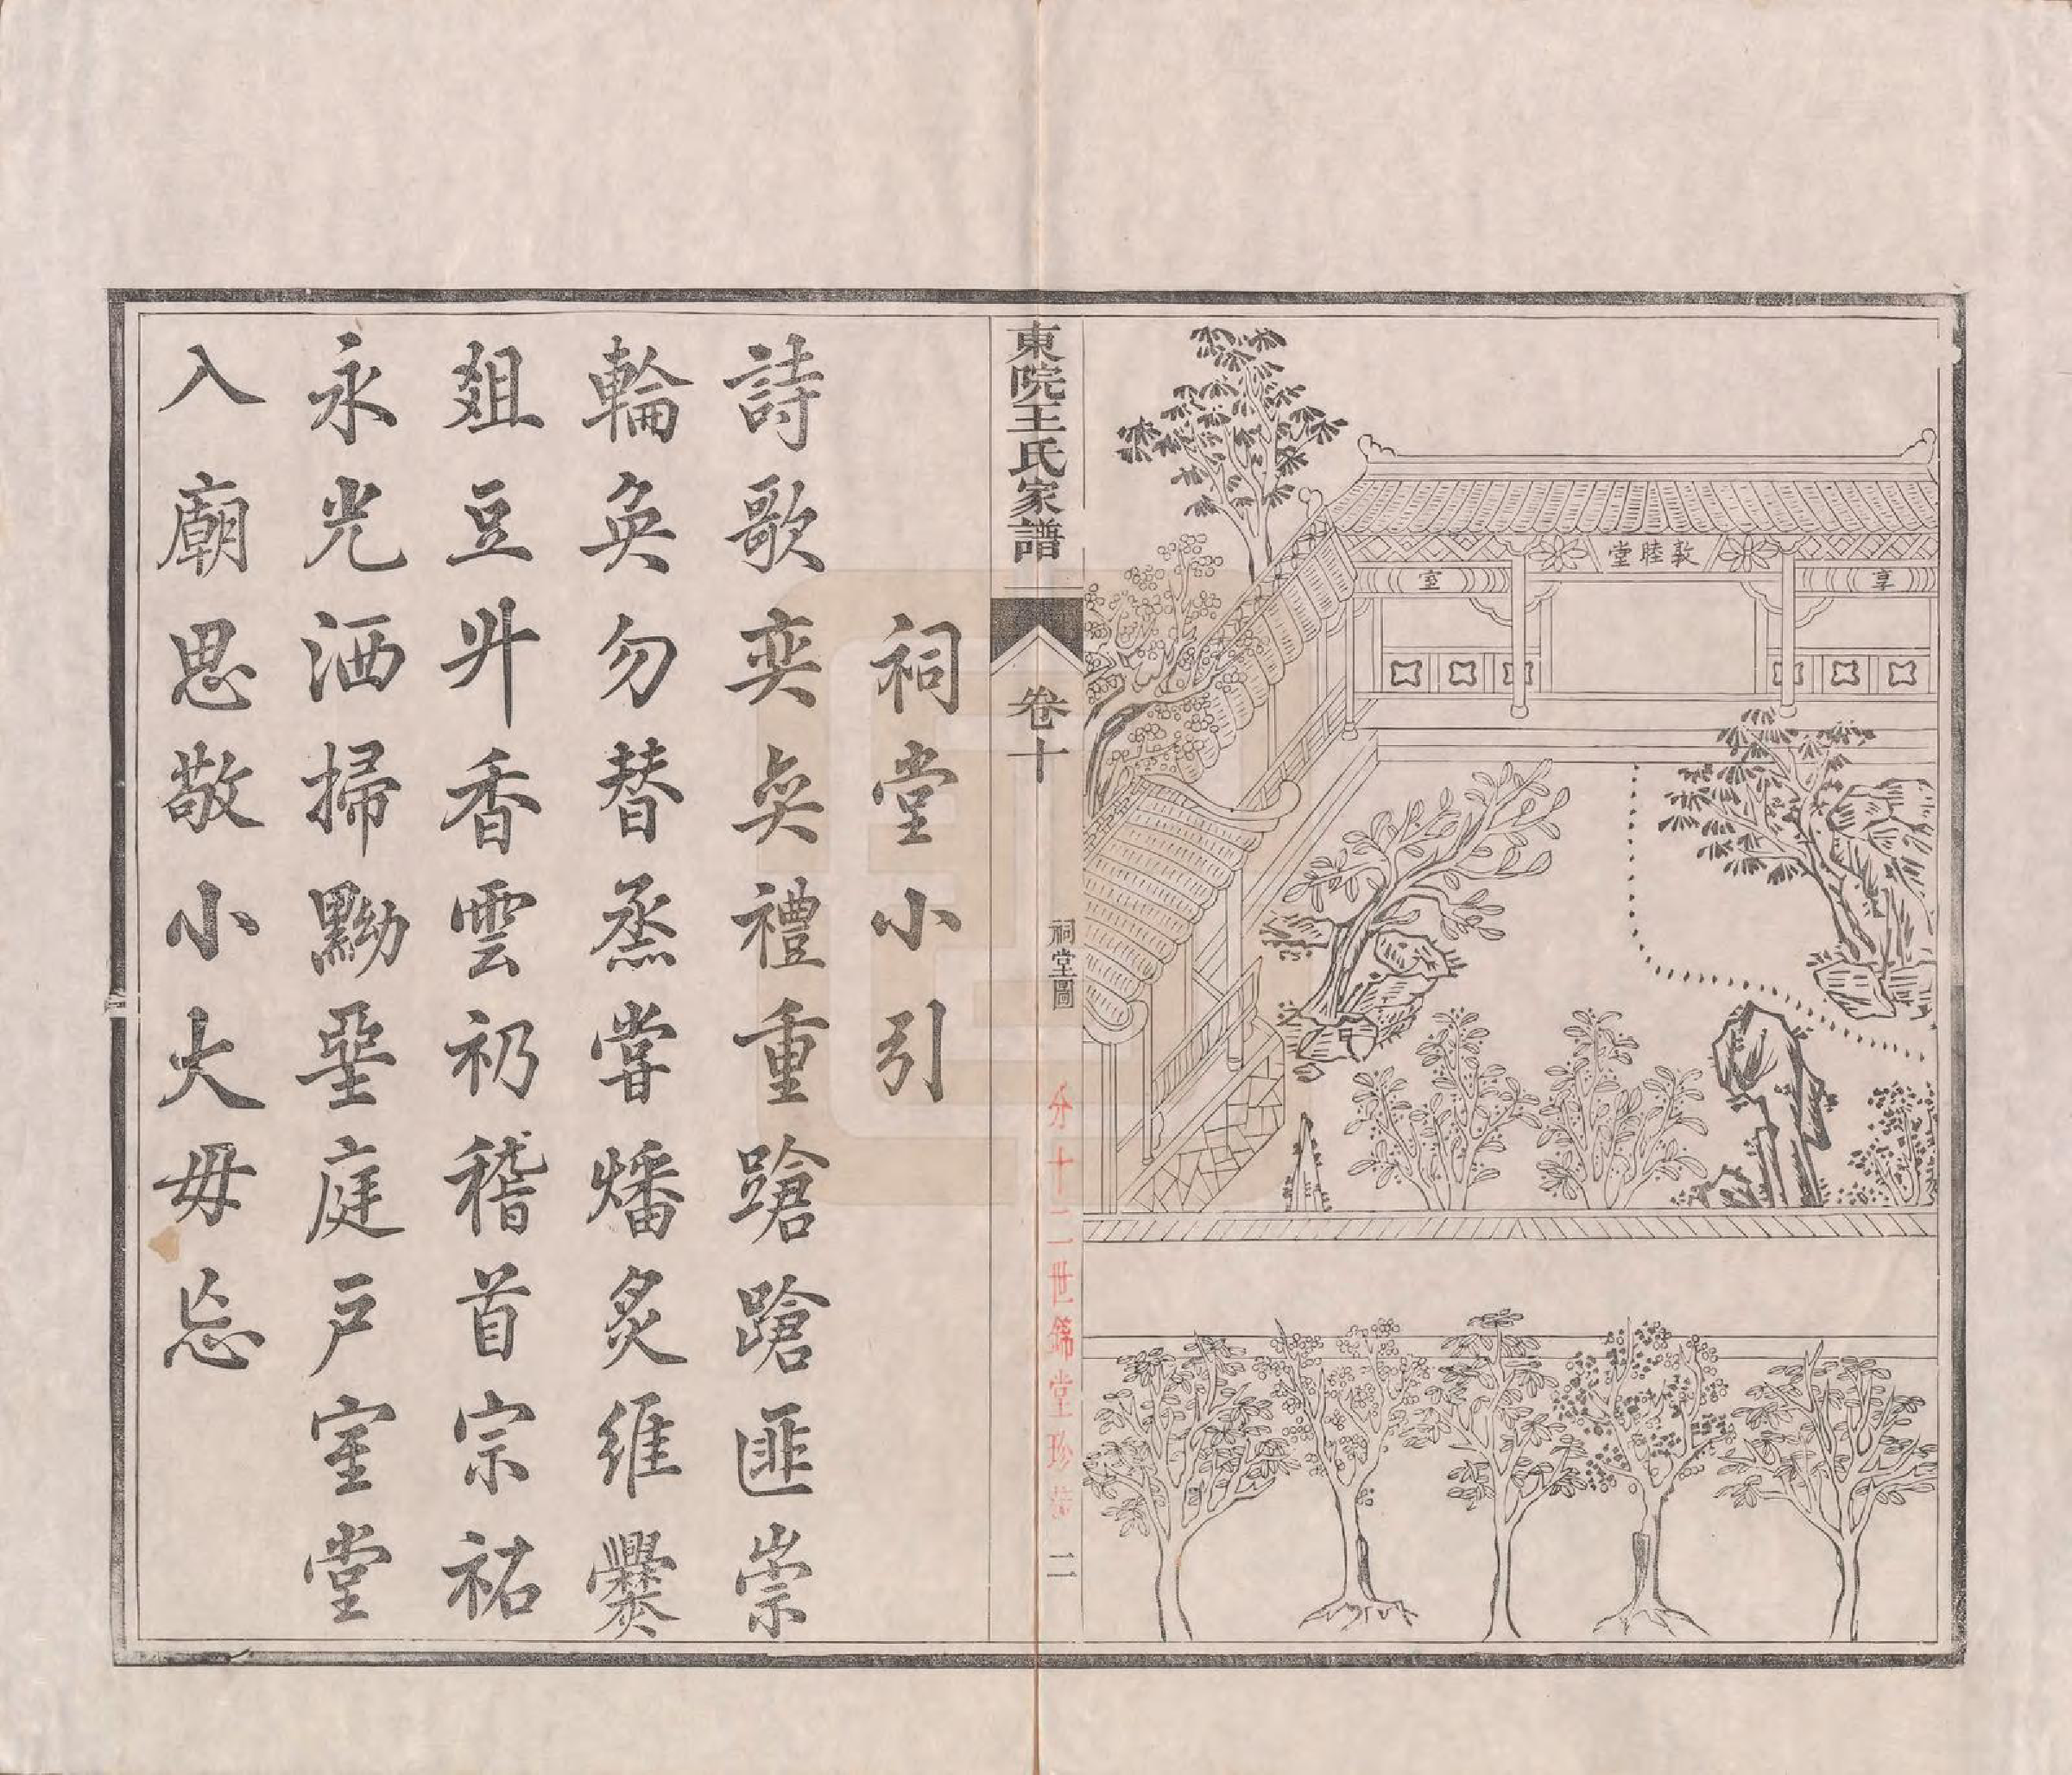 敦睦堂
享
室
東院王氏家譜
卷十
祠堂圖
分十二世錦堂珍
二
祠堂小引
詩歌奕奕禮重蹌蹌匪崇
輪奐勿替烝嘗燔炙維爨
俎豆升香雲礽稽首宗祐
永光洒掃黝堊庭戶室堂
入廟思敬小大毋忘